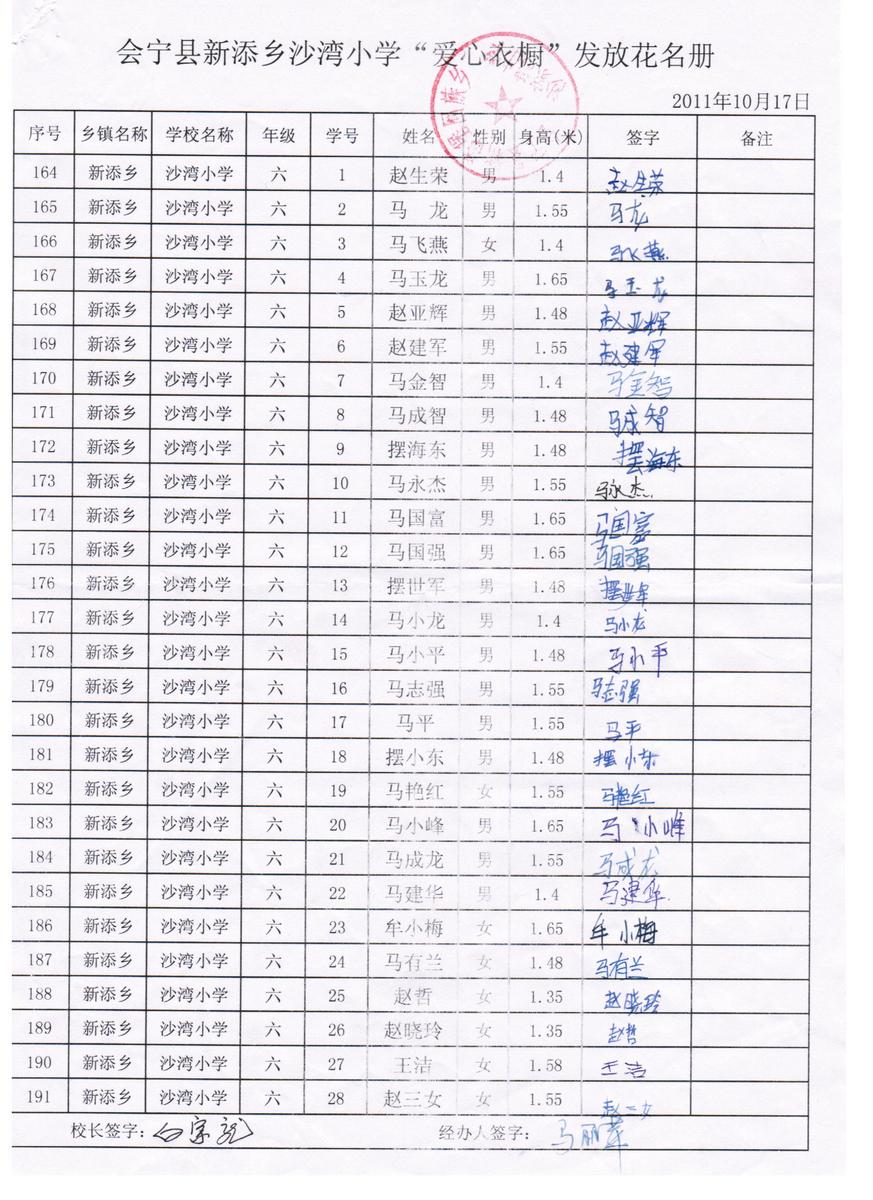 会宁县新添乡沙湾小学“爱心衣橱”发放花名册
2011年10月17日
序号 乡镇名称 学校名称 年级 学号 姓名 性别 身高(米) 签字 备注
164 新添乡 沙湾小学 六 1 赵生荣 男 1.4 赵生荣
165 新添乡 沙湾小学 六 2 马 龙 男 1.55 马龙
166 新添乡 沙湾小学 六 3 马飞燕 女 1.4 马飞燕
167 新添乡 沙湾小学 六 4 马玉龙 男 1.65 马玉龙
168 新添乡 沙湾小学 六 5 赵亚辉 男 1.48 赵亚辉
169 新添乡 沙湾小学 六 6 赵建军 男 1.55 赵建军
170 新添乡 沙湾小学 六 7 马金智 男 1.4 马金智
171 新添乡 沙湾小学 六 8 马成智 男 1.48 马成智
172 新添乡 沙湾小学 六 9 摆海东 男 1.48 摆海东
173 新添乡 沙湾小学 六 10 马永杰 男 1.55 马永杰
174 新添乡 沙湾小学 六 11 马国富 男 1.65 马国富
175 新添乡 沙湾小学 六 12 马国强 男 1.65 马国强
176 新添乡 沙湾小学 六 13 摆世军 男 1.48 摆世军
177 新添乡 沙湾小学 六 14 马小龙 男 1.4 马小龙
178 新添乡 沙湾小学 六 15 马小平 男 1.48 马小平
179 新添乡 沙湾小学 六 16 马志强 男 1.55 马志强
180 新添乡 沙湾小学 六 17 马平 男 1.55 马平
181 新添乡 沙湾小学 六 18 摆小东 男 1.48 摆小东
182 新添乡 沙湾小学 六 19 马艳红 女 1.55 马艳红
183 新添乡 沙湾小学 六 20 马小峰 男 1.65 马小峰
184 新添乡 沙湾小学 六 21 马成龙 男 1.55 马成龙
185 新添乡 沙湾小学 六 22 马建华 男 1.4 马建华
186 新添乡 沙湾小学 六 23 牟小梅 女 1.65 牟小梅
187 新添乡 沙湾小学 六 24 马有兰 女 1.48 马有兰
188 新添乡 沙湾小学 六 25 赵哲 女 1.35 赵晓玲
189 新添乡 沙湾小学 六 26 赵晓玲 女 1.35 赵哲
190 新添乡 沙湾小学 六 27 王洁 女 1.58 王洁
191 新添乡 沙湾小学 六 28 赵三女 女 1.55 赵三女
校长签字： 经办人签字：